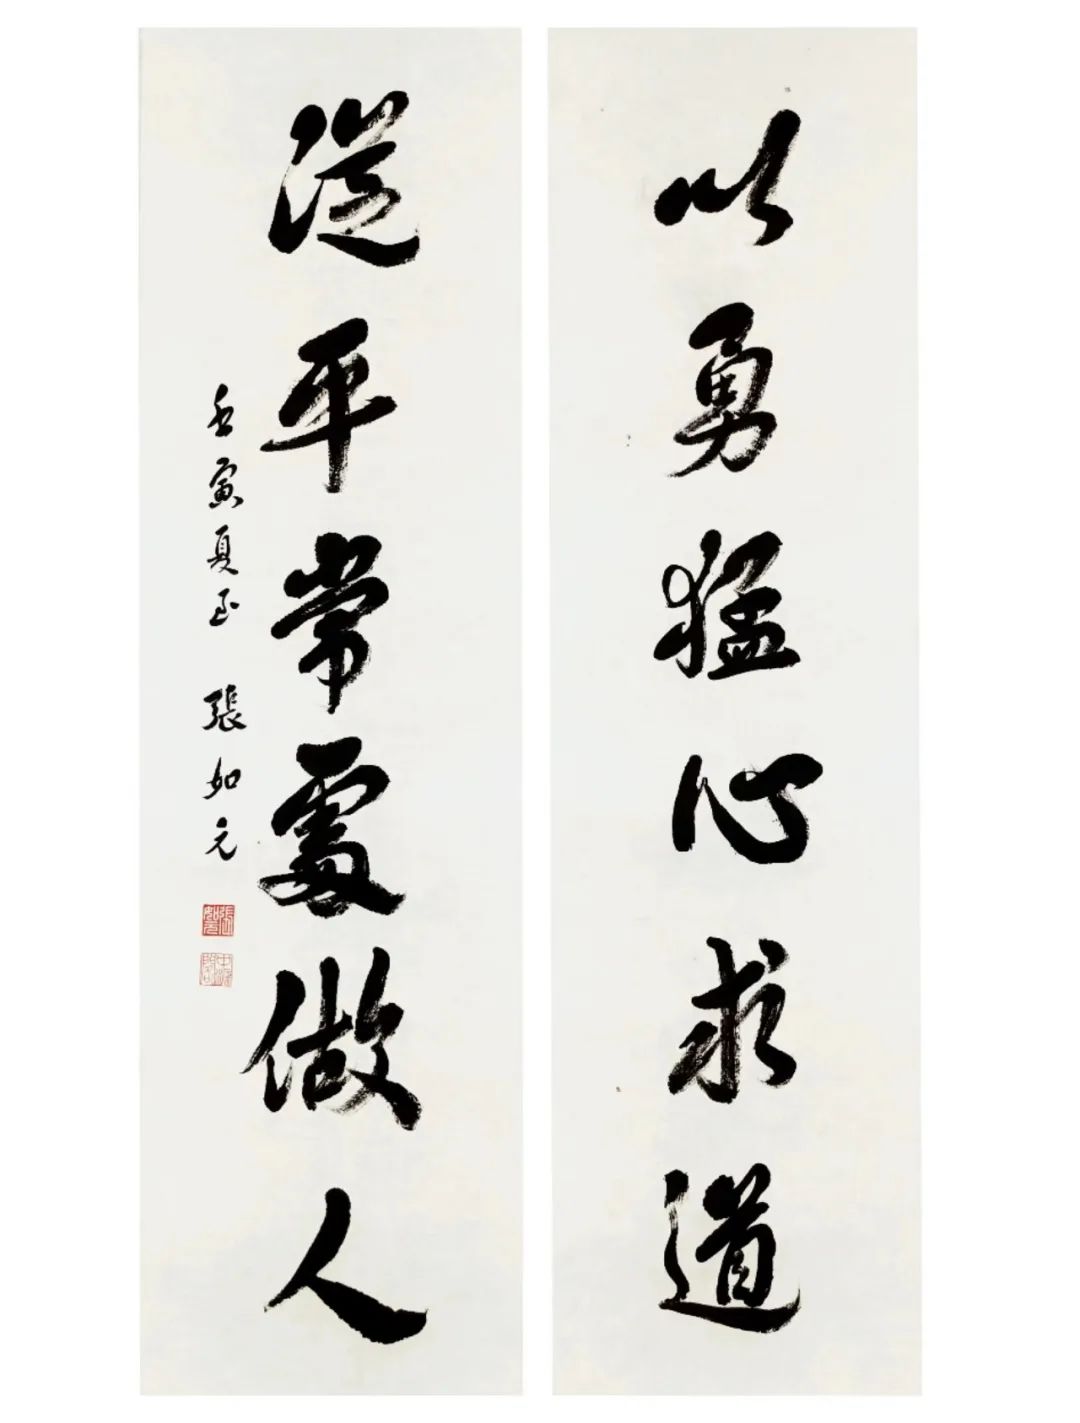 以勇猛心求道
從平常處做人
壬寅夏至 張如元
張如元